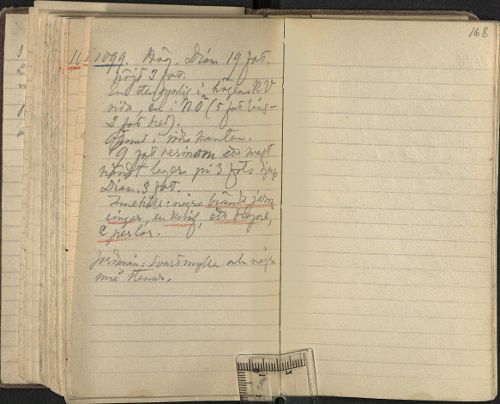 168
1099. Hög. Diam 19 fot.
höjd 3 fot.
En sten synlig i högens NV
sida, en i NO (5 fot lång
2 fot bred).
i södra kanten.
9 fot ett svagt
lager på 2 fots djup
Diam. 3 fot.
Innehöll: några brända jern
ringar, en knif, ett
2 perlor.
Jordmån: Svartmylla och några
små stenar.